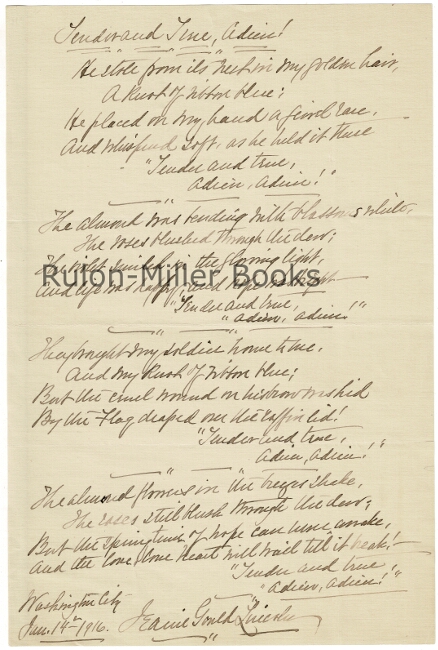 Tender and True, Adieu!
He stole from its nest in my golden hair,
A knot of ribbon blue;
He placed on my hand a jewel rare,
And whispered soft, as he held it there
"Tender and true,
adieu, adieu!"
The almond was bending with blossoms white,
The roses blushed through the dew;
the light,
And life was happy, and
"Tender and true,
"adieu, adieu!"
Rulon-Miller Books
They brought my soldier home to me,
And my knot of ribbon blue;
But the cruel wound on his brow was hid
By the Flag draped over the coffin lid!
"Tender and true,
Adieu, adieu!"
The almond flowers in the shade,
The roses still blush through the dew;
But the springtime of hope can never awake,
And the lone, lone heart will wail till it break!
"Tender and true,
"Adieu, adieu!"
Washington City
Jan. 14th 1916.
Jeanie Gould Lincoln